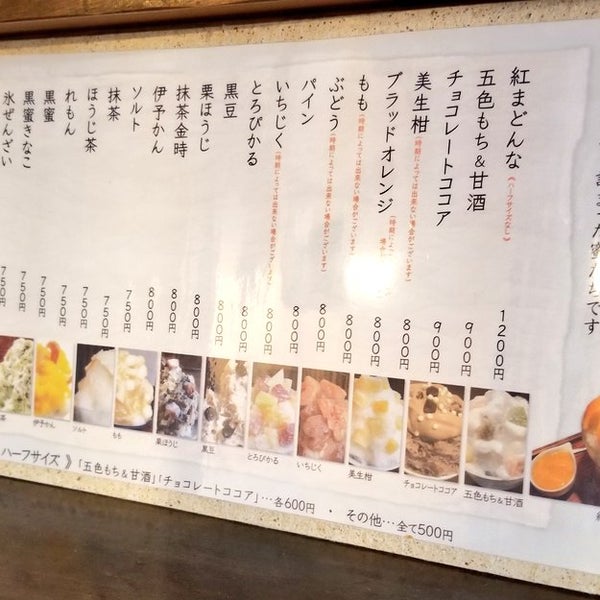 た蜜たちです
紅まどんな（ハーフサイズなし） 1200円
五色もち＆甘酒 900円
チョコレートココア 900円
美生柑（時期によっては出来ない場合がございます） 800円
ブラッドオレンジ（時期によって 800円
もも（時期によっては出来ない場合がございます） 800円
ぶどう（時期によっては出来ない場合がございます） 800円
パイン 800円
いちじく（時期によっては出来ない場合がございます） 800円
とろぴかる 800円
黒豆 800円
栗ほうじ 800円
抹茶金時 800円
伊予かん 750円
ソルト 750円
抹茶 750円
ほうじ茶 750円
れもん 750円
黒蜜 750円
黒蜜きなこ 750円
氷ぜんざい 750円
茶
伊予かん
ソルト
もも
栗ほうじ
黒豆
とろぴかる
いちじく
美生柑
チョコレートココア
五色もち＆甘酒
ハーフサイズ 》「五色もち＆甘酒」「チョコレートココア」…各600円 ・ その他…全て500円